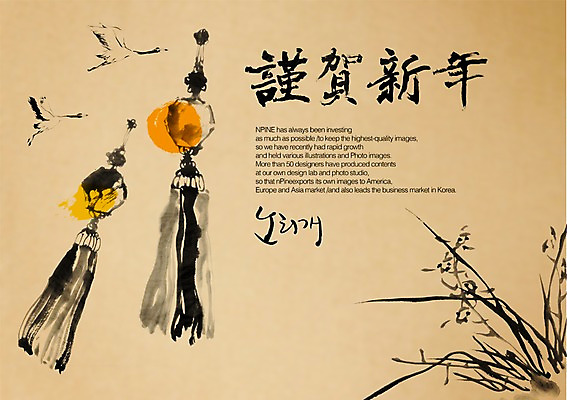 謹賀新年
NPINE has always been investing
as much as possible /to keep the highest-quality images,
so we have recently had rapid growth
and held various illustrations and Photo images.
More than 50 designers have produced contents
at our own design lab and photo studio,
so that nPineexports its own images to America,
Europe and Asia market /and also leads the business market in Korea.
노리개